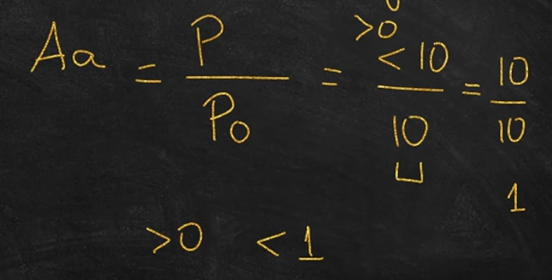 >0
Aa = P / P0 = <10 / 10 = 10 / 10
1
>0 <1